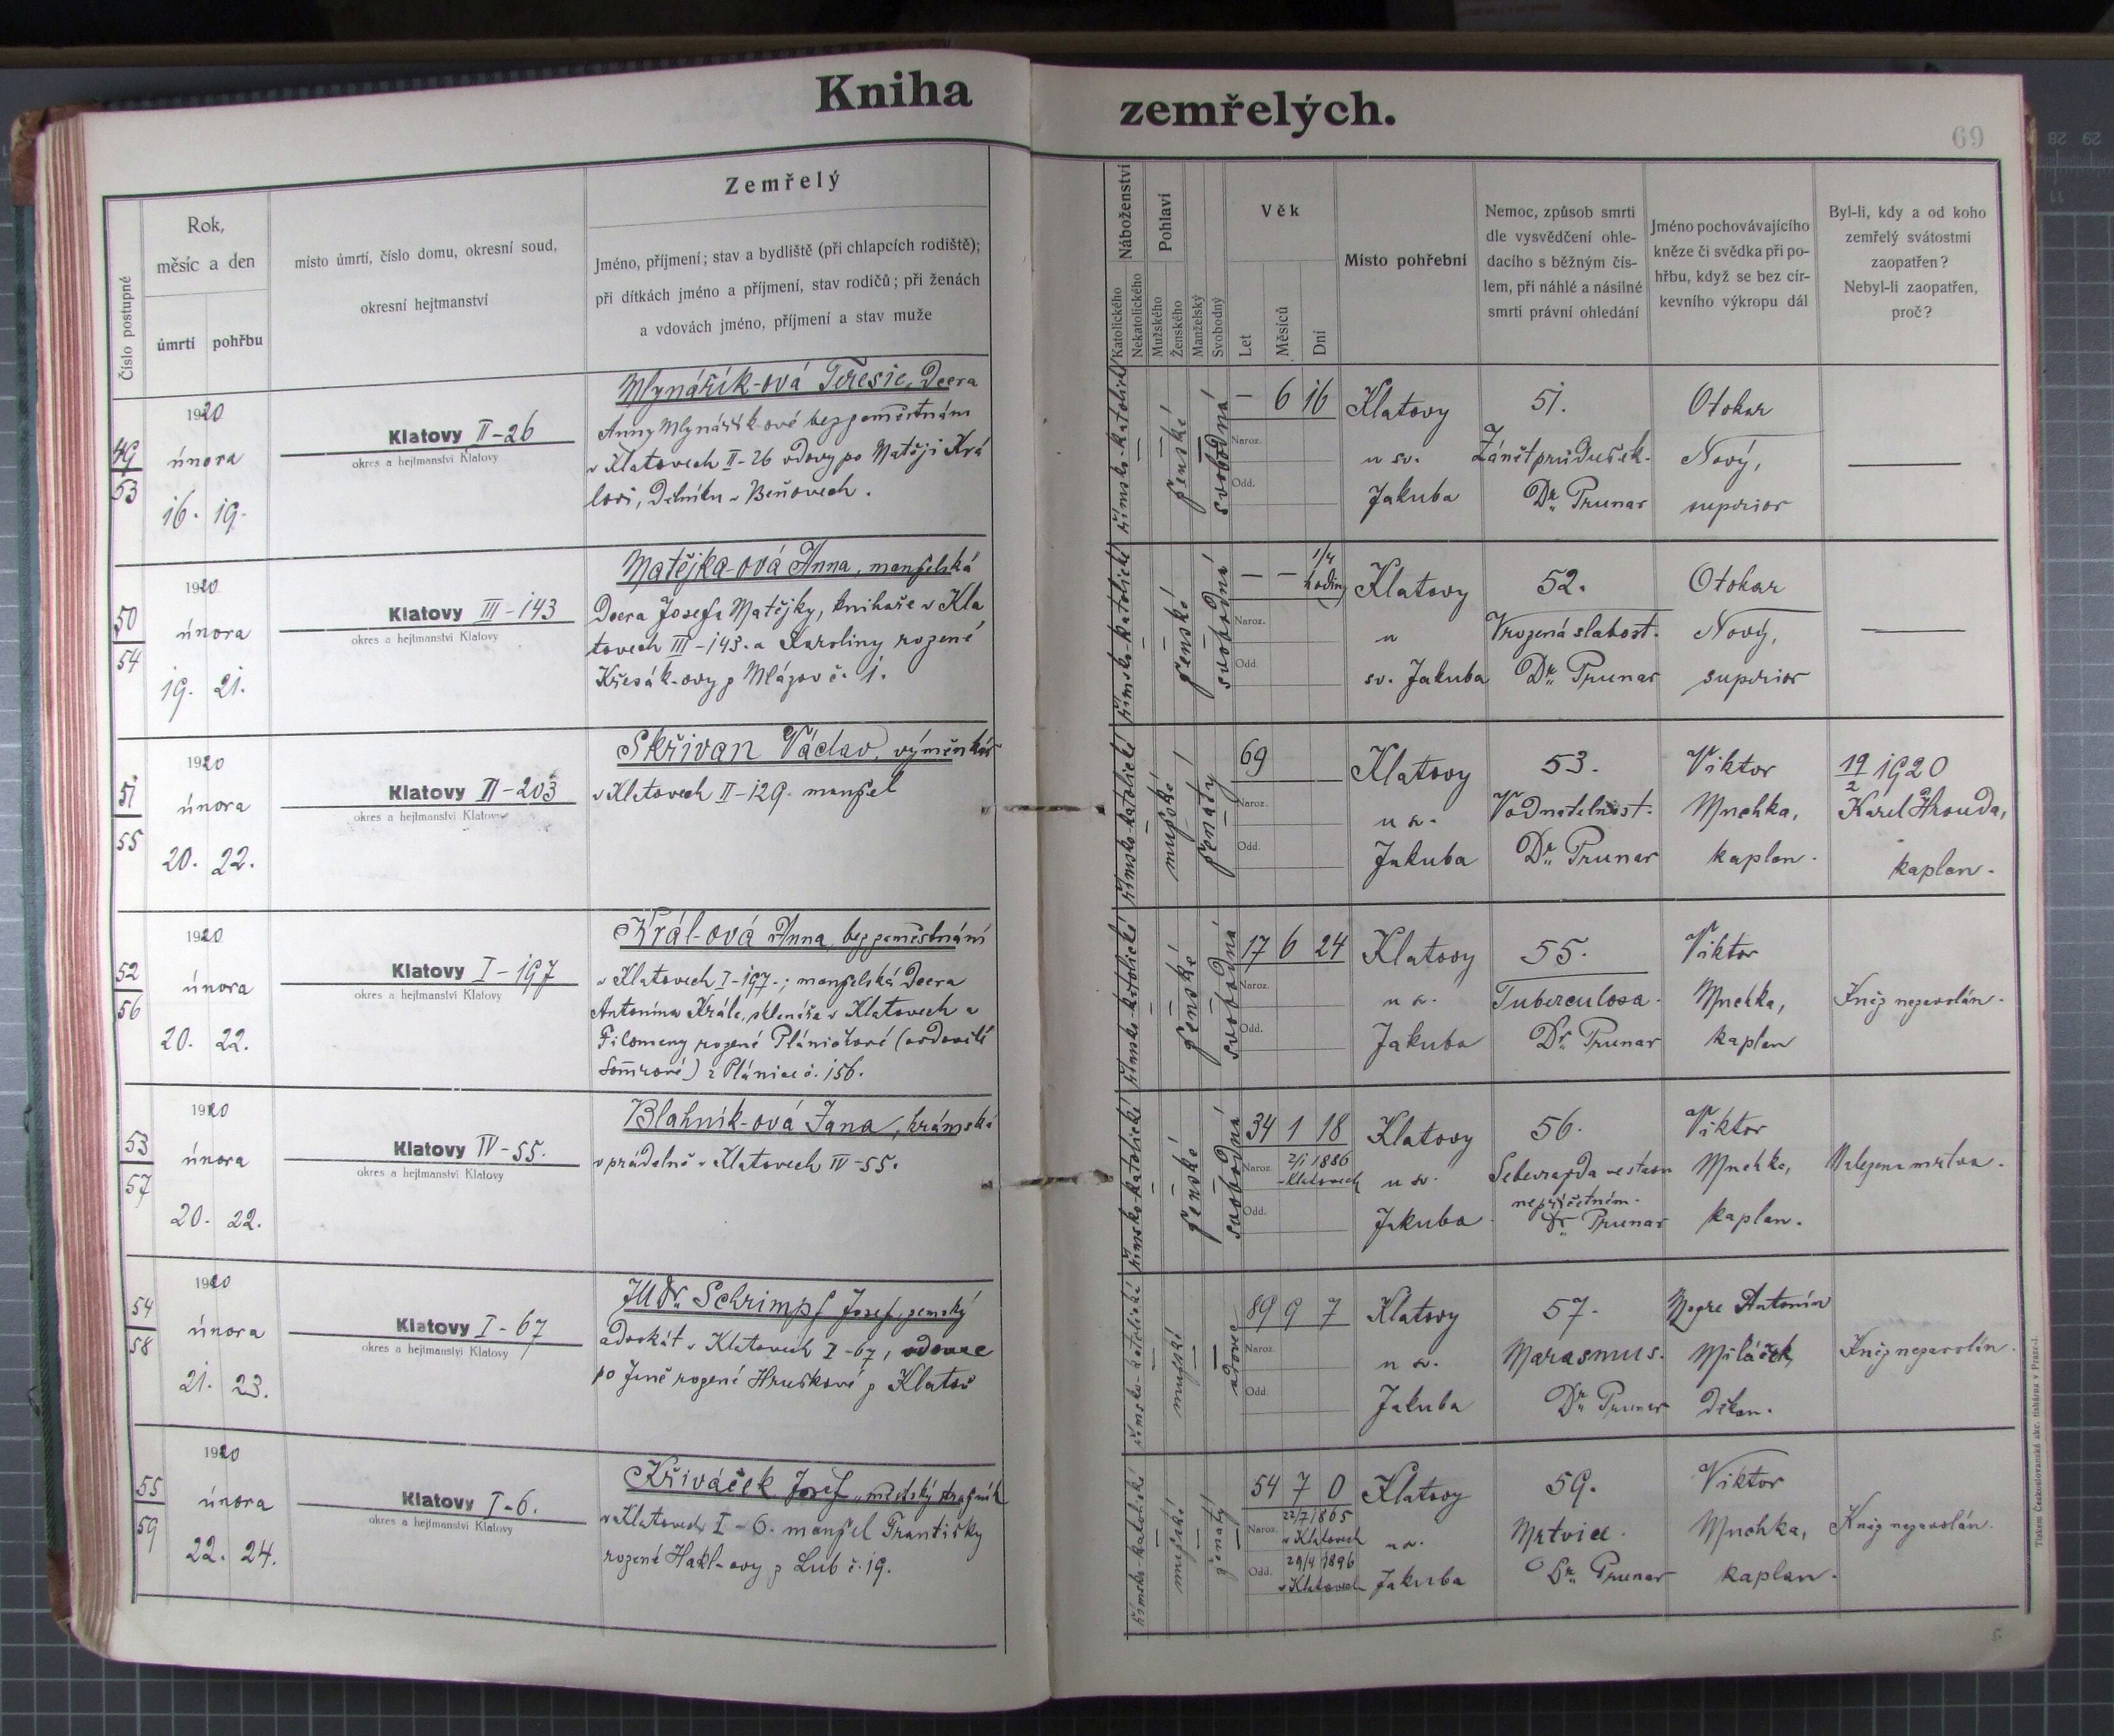 Kniha
zemřelých.
69
Číslo postupné
Rok,
měsíc a den
úmrtí
pohřbu
místo úmrtí, číslo domu, okresní soud,
okresní hejtmanství
Zemřelý
Jméno, příjmení; stav a bydliště (při chlapcích rodiště);
při dítkách jméno a příjmení, stav rodičů; při ženách
a vdovách jméno, příjmení a stav muže
Náboženství
Katolického
Nekatolického
Pohlaví
Mužského
Ženského
Manželský
Svobodný
Věk
Let
Měsíců
Dní
Místo pohřební
Nemoc, způsob smrti
dle vysvědčení ohle-
dacího s běžným čís-
lem, při náhlé a násilné
smrti právní ohledání
Jméno pochovávajícího
kněze či svědka při po-
hřbu, když se bez cír-
kevního výkropu dál
Byl-li, kdy a od koho
zemřelý svátostmi
zaopatřen?
Nebyl-li zaopatřen,
proč?
49
53
1920
února
16. 19.
Klatovy II-26
okres a hejtmanství Klatovy
Mlynářík-ová Teresie, dcera
Anny Mlynářík-ové bez zaměstnání
v Klatovech II-26 vdovy po Matěji Krá
lovi, dělníku v Beňovech.
římsko-katolické
ženské
svobodná
— 6 16
Naroz.
Odd.
Klatovy
u sv.
Jakuba
51.
Zánět průdušek.
Dr. Prunar
Otokar
Nový,
superior
50
54
1920
února
19. 21.
Klatovy III-143
okres a hejtmanství Klatovy
Matějka-ová Anna, manželská
dcera Josefa Matějky, knihaře v Kla
tovech III-143. a Karoliny rozené
Křesák-ovy z Mlázov č. 1.
římsko-katolické
ženské
svobodná
— — 1/4
hodiny
Naroz.
Odd.
Klatovy
u
sv. Jakuba
52.
Vrozená slabost.
Dr. Prunar
Otokar
Nový,
superior
51
55
1920
února
20. 22.
Klatovy II-203
okres a hejtmanství Klatovy
Skřivan Václav, výměnkář
v Klatovech II-129. manžel
římsko-katolické
mužské
ženatý
69
Naroz.
Odd.
Klatovy
u sv.
Jakuba
53.
Vodnatelnost.
Dr. Prunar
Viktor
Muchka,
kaplan.
19/2 1920
Karel Hrouda,
kaplan.
52
56
1920
února
20. 22.
Klatovy I-197
okres a hejtmanství Klatovy
Král-ová Anna, bez zaměstnání
v Klatovech I-197.; manželská dcera
Antonína Krále, sklenáře v Klatovech a
Filomeny rozené Pláničkové (ovdovělé
) z Plánice č. 156.
římsko-katolické
ženské
svobodná
17 6 24
Naroz.
Odd.
Klatovy
u sv.
Jakuba
55.
Tuberculosa.
Dr. Prunar
Viktor
Muchka,
kaplan
Kněz nezavolán.
53
57
1920
února
20. 22.
Klatovy IV-55.
okres a hejtmanství Klatovy
Blahník-ová Jana,
v prádelně v Klatovech IV-55.
římsko-katolické
ženské
svobodná
34 1 18
Naroz. 2/1 1886
v Klatovech
Odd.
Klatovy
u sv.
Jakuba
56.
Sebevražda ve stavu
nepříčetném.
Dr. Prunar
Viktor
Muchka,
kaplan.
Nalezena mrtva.
54
58
1920
února
21. 23.
Klatovy I-67
okres a hejtmanství Klatovy
JUDr. Schrimpf Josef, zemský
advokát v Klatovech I-67, vdovec
po Janě rozené Hruškové z Klatov
římsko-katolické
mužské
vdovec
89 9 7
Naroz.
Odd.
Klatovy
u sv.
Jakuba
57.
Marasmus.
Dr. Prunar
Msgre Antonín
Miláček,
děkan.
Kněz nezavolán.
55
59
1920
února
22. 24.
Klatovy I-6.
okres a hejtmanství Klatovy
Křiváček Josef, městský strážník
v Klatovech I-6. manžel Františky
rozené Hakl-ovy z Lub č. 19.
římsko-katolické
mužské
ženatý
54 7 0
Naroz. 22/7 1865
v Klatovech
Odd. 29/4 1896
v Klatovech
Klatovy
u sv.
Jakuba
59.
Mrtvice.
Dr. Prunar
Viktor
Muchka,
kaplan.
Kněz nezavolán.
Tiskem Československé akc. tiskárna v Praze-I.